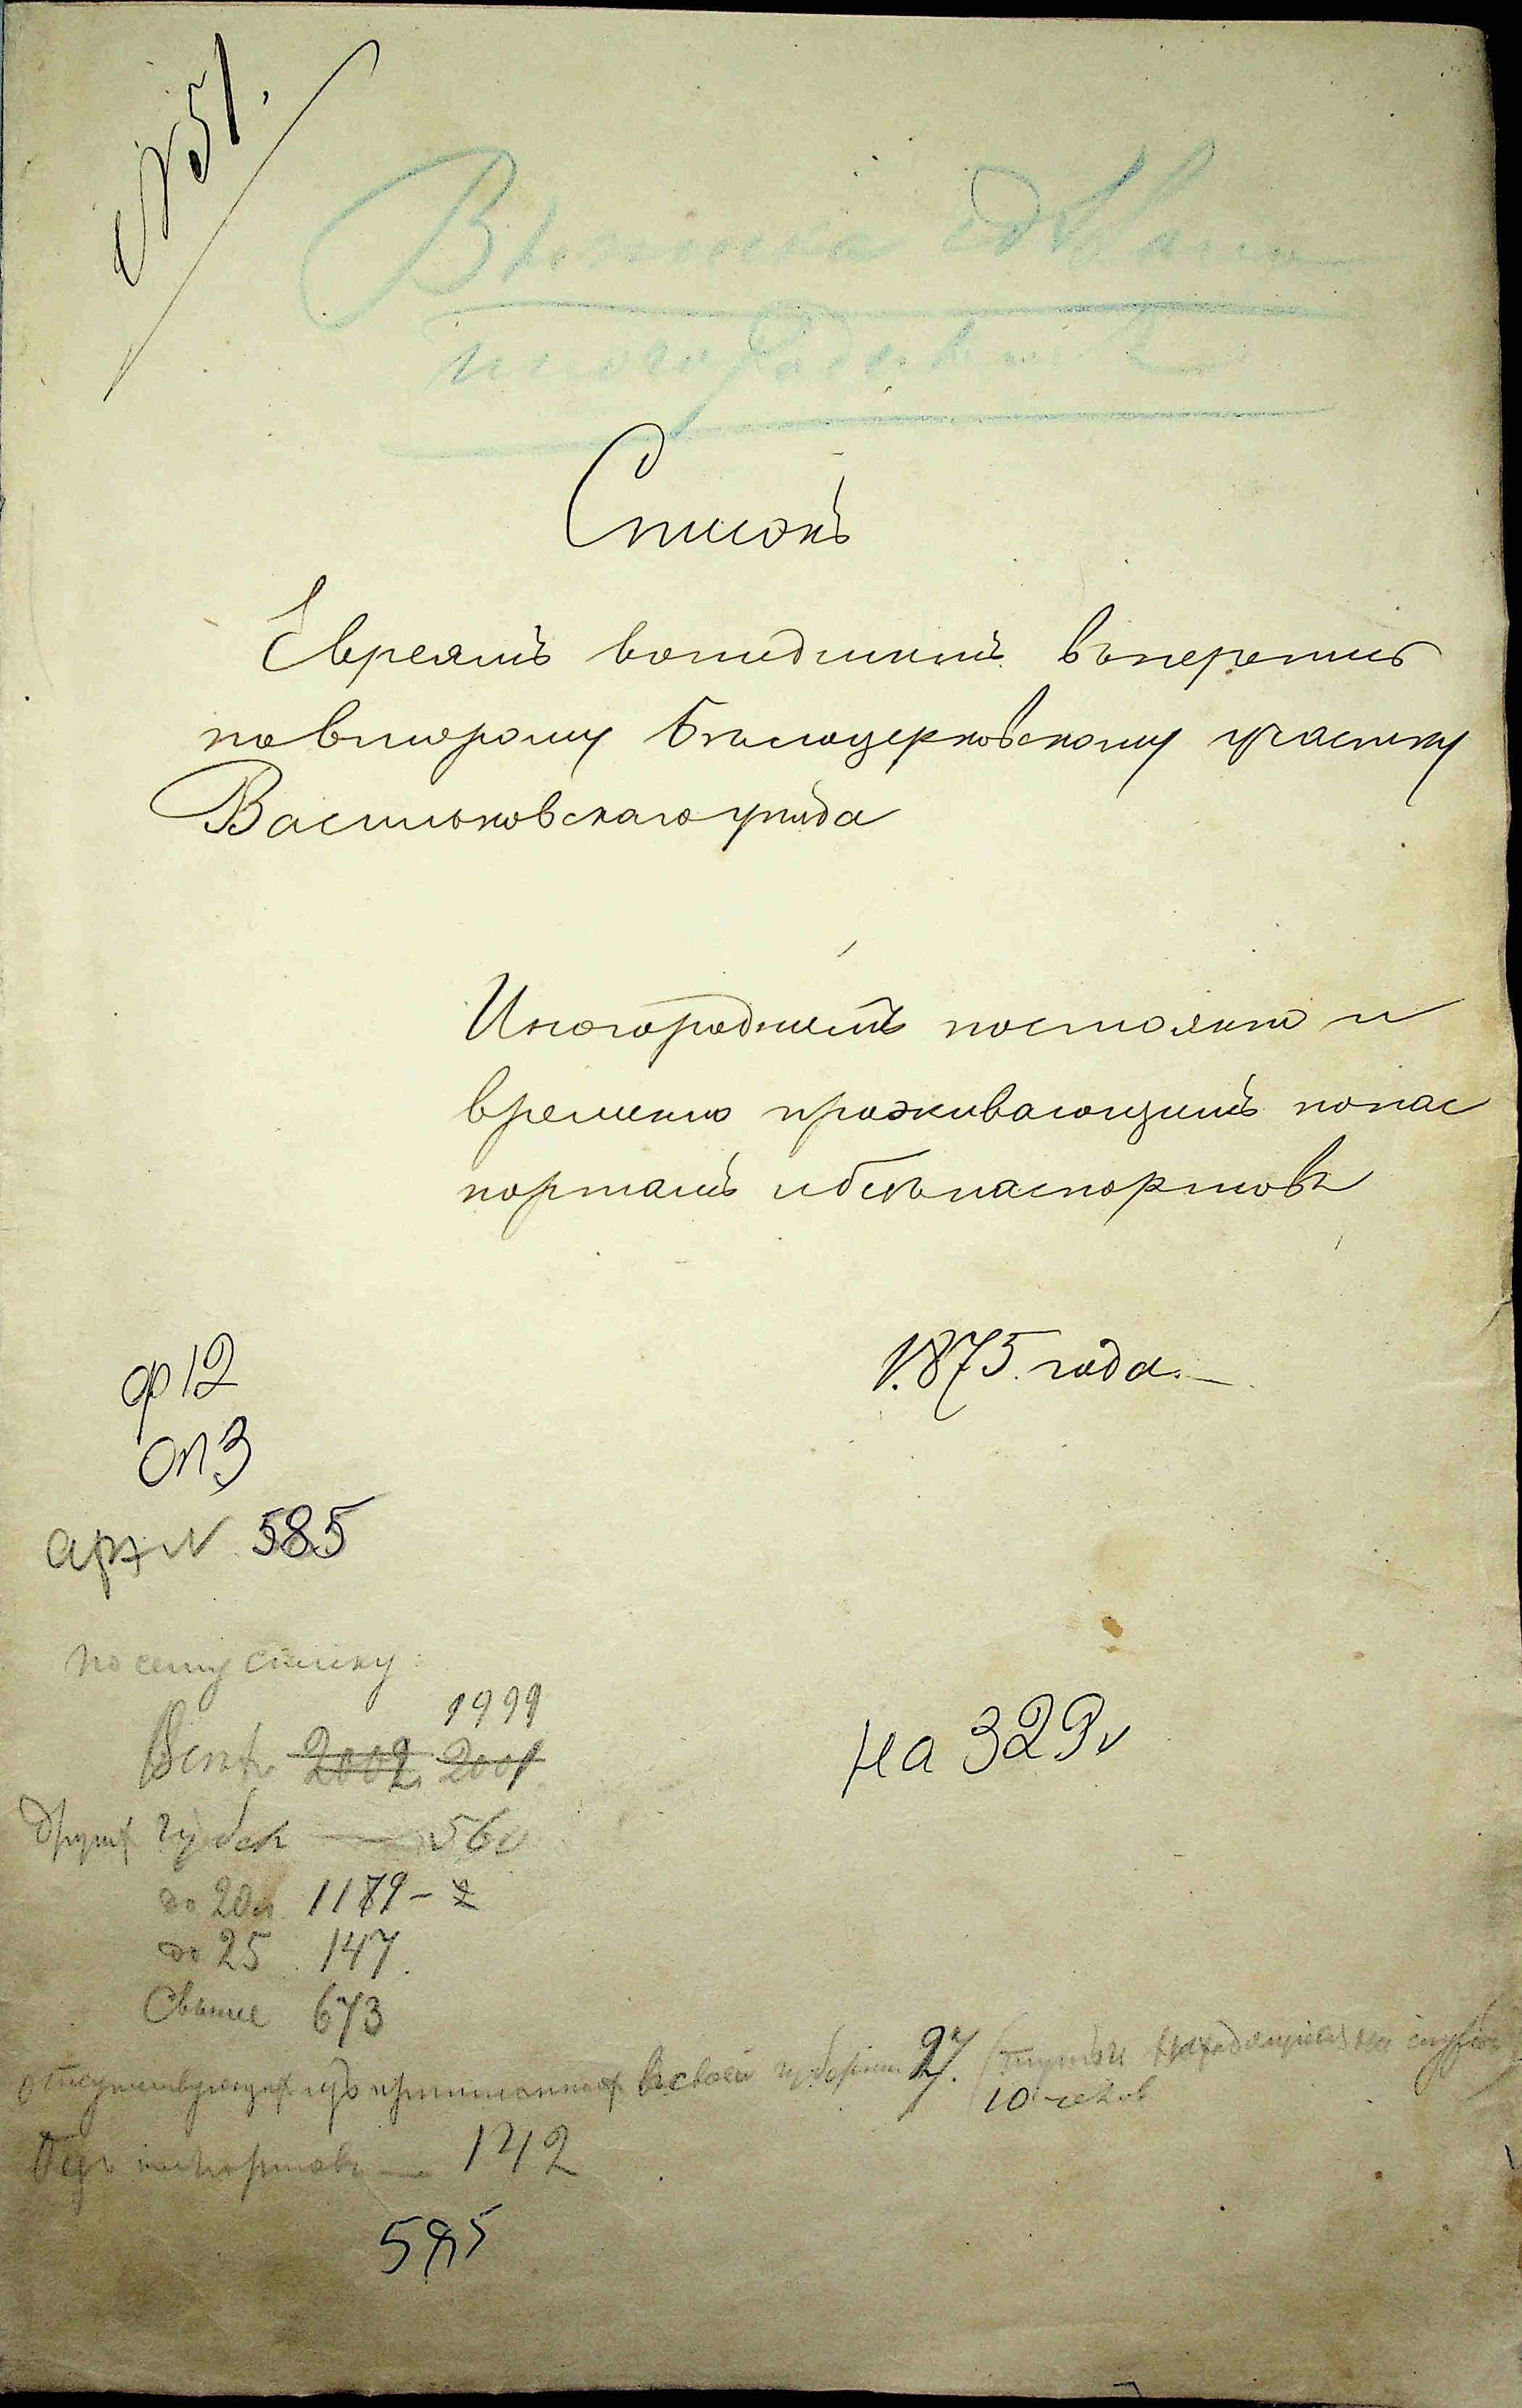 № 51.
Выписка сдѣлана
иногороднихъ
Списокъ
Евреямъ вошедшимъ въперепись
повторому Бѣлоцерковскому участку
Васильковскаго уѣзда
Иногороднимъ постоянно и
временно проживающимъ попас
портамъ ибезъпаспортовъ
1875 года.
ф 12
оп 3
арх № 585
по сему списку:
1999
Всѣхъ 2002 2001
другихъ губерн — 56
до 20 л 1179 –
до 25 147.
Свыше 673
на 329
отсутствующихъ въсвоей губерніи 27. находящіеся на службѣ
10 челов
Безъ паспортовъ — 142
585